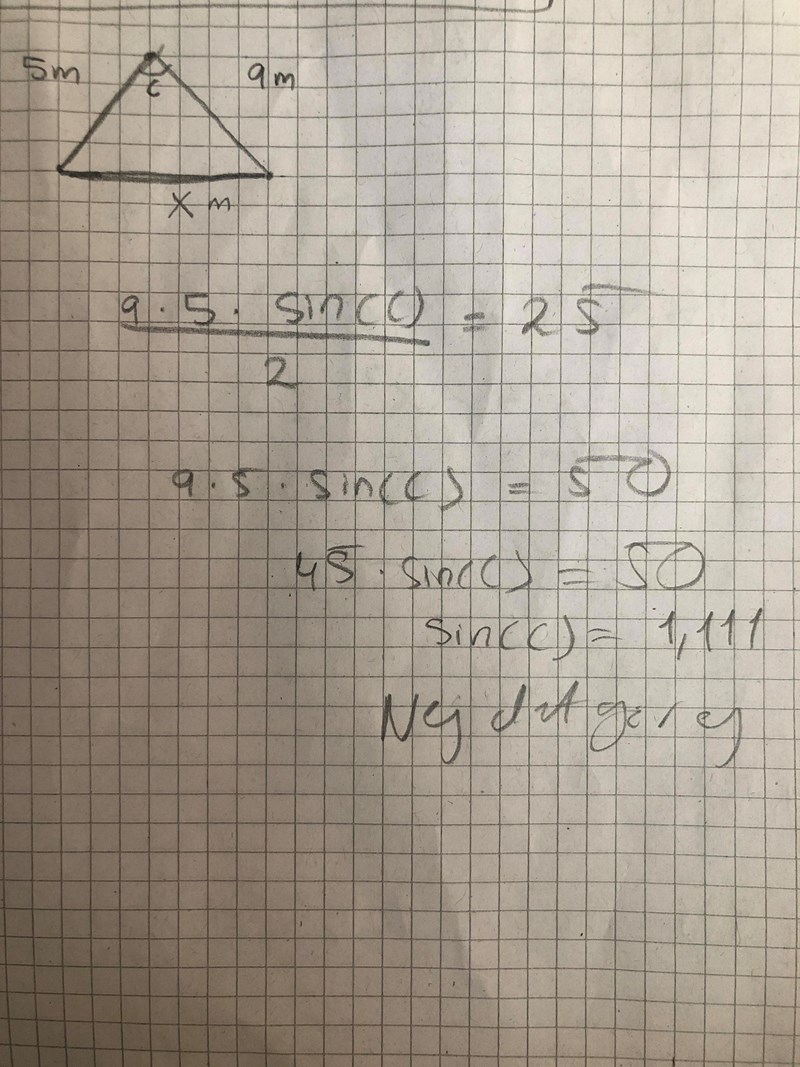 5m 9m
C
X m
9 · 5 · sin(C) = 25
2
9 · 5 · sin(C) = 50
45 · sin(C) = 50
sin(C) = 1,111
Nej det går ej